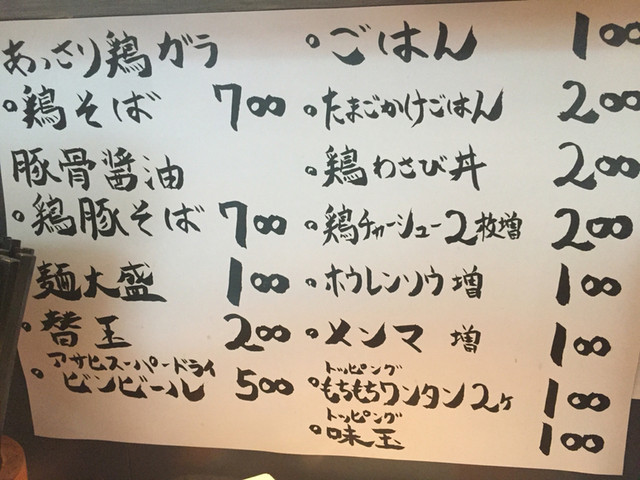 あっさり鶏ガラ
。鶏そば 700
豚骨醤油
。鶏豚そば 700
麺大盛 100
。替玉 200
アサヒスーパードライ
。ビンビール 500
。ごはん 100
。たまごかけごはん 200
。鶏わさび丼 200
。鶏チャーシュー2枚増 200
。ホウレンソウ増 100
。メンマ増 100
トッピング
。もちもちワンタン2ヶ 100
トッピング
。味玉 100